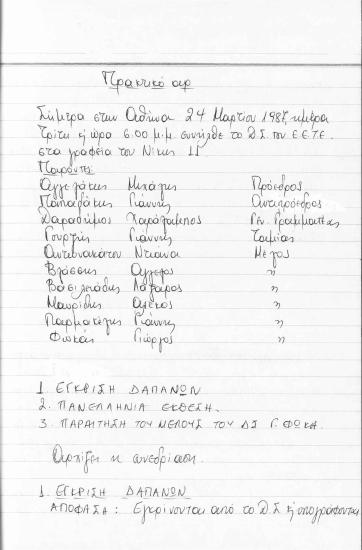 Πρακτικό αρ
Σήμερα στην Αθήνα 24 Μαρτίου 1987, ημέρα
Τρίτη & ώρα 6.00 μ.μ. συνήλθε το Δ.Σ. του Ε.Ε.Τ.Ε.
στα γραφεία του Νίκης 11
Παρόντες:
Αγγελάκης Μιχάλης Πρόεδρος
Παπαδάκης Γιάννης Αντιπρόεδρος
Χαράλαμπος Γεν. Γραμματέας
Γουρζής Γιάννης Ταμίας
Αντωνακάτου Ντιάνα Μέλος
Βλάσσης Άγγελος "
Βασιλειάδης Λάζαρος "
Μαυρίδης Αλέκος "
Παρμακέλης Γιάννης "
Φωκάς Γιώργος "
1. ΕΓΚΡΙΣΗ ΔΑΠΑΝΩΝ
2. ΠΑΝΕΛΛΗΝΙΑ ΕΚΘΕΣΗ.
3. ΠΑΡΑΙΤΗΣΗ ΤΟΥ ΜΕΛΟΥΣ ΤΟΥ ΔΣ Γ. ΦΩΚΑ.
Αρχίζει η συνεδρίαση.
1. ΕΓΚΡΙΣΗ ΔΑΠΑΝΩΝ
ΑΠΟΦΑΣΗ: Εγκρίνονται από το Δ.Σ. & υπογράφονται